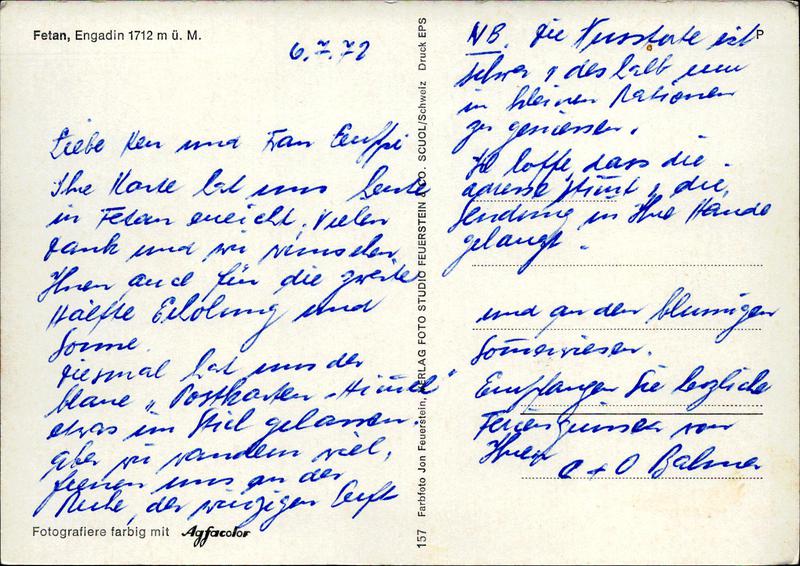 Fetan, Engadin 1712 m ü. M.
6.7.72
Liebe Herr und Frau
Ihre Karte hat uns heute
in Fetan erreicht, Vielen
Dank und wir wünschen
Ihnen auch für die zweite
Hälfte Erholung und
Sonne.
Diesmal hat uns der
blaue "Postkarten-Himmel"
etwas im Stich gelassen.
aber wir wandern viel,
freuen uns an der
Ruhe, der würzigen Luft
Fotografiere farbig mit Agfacolor
157 Farbfoto Jon Feuerstein, VERLAG FOTO STUDIO FEUERSTEIN & CO. SCUOL/Schweiz Druck EPS
P
NB. Die Nusstorte ist
schwer, deshalb nur
in kleinen Rationen
zu geniessen.
Ich hoffe, dass die
Adresse stimmt, die
Sendung in Ihre Hände
gelangt.
und an den blumigen
Sommerwiesen.
Empfangen Sie herzliche
Feriengrüsse von
Ihren
C + O Balmer